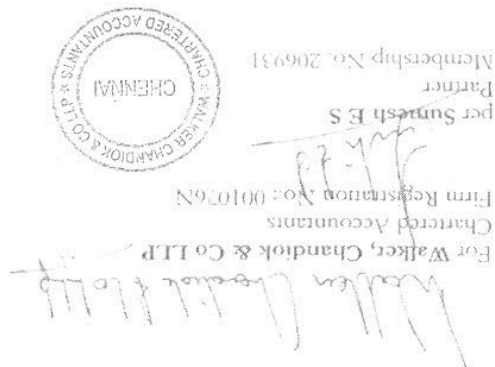 Walker Chandiok & Co LLP
For Walker, Chandiok & Co LLP
Chartered Accountants
Firm Registration No.: 001076N
per Sumesh E S
Partner
Membership No. 206931
WALKER CHANDIOK & CO LLP
CHARTERED ACCOUNTANTS
CHENNAI